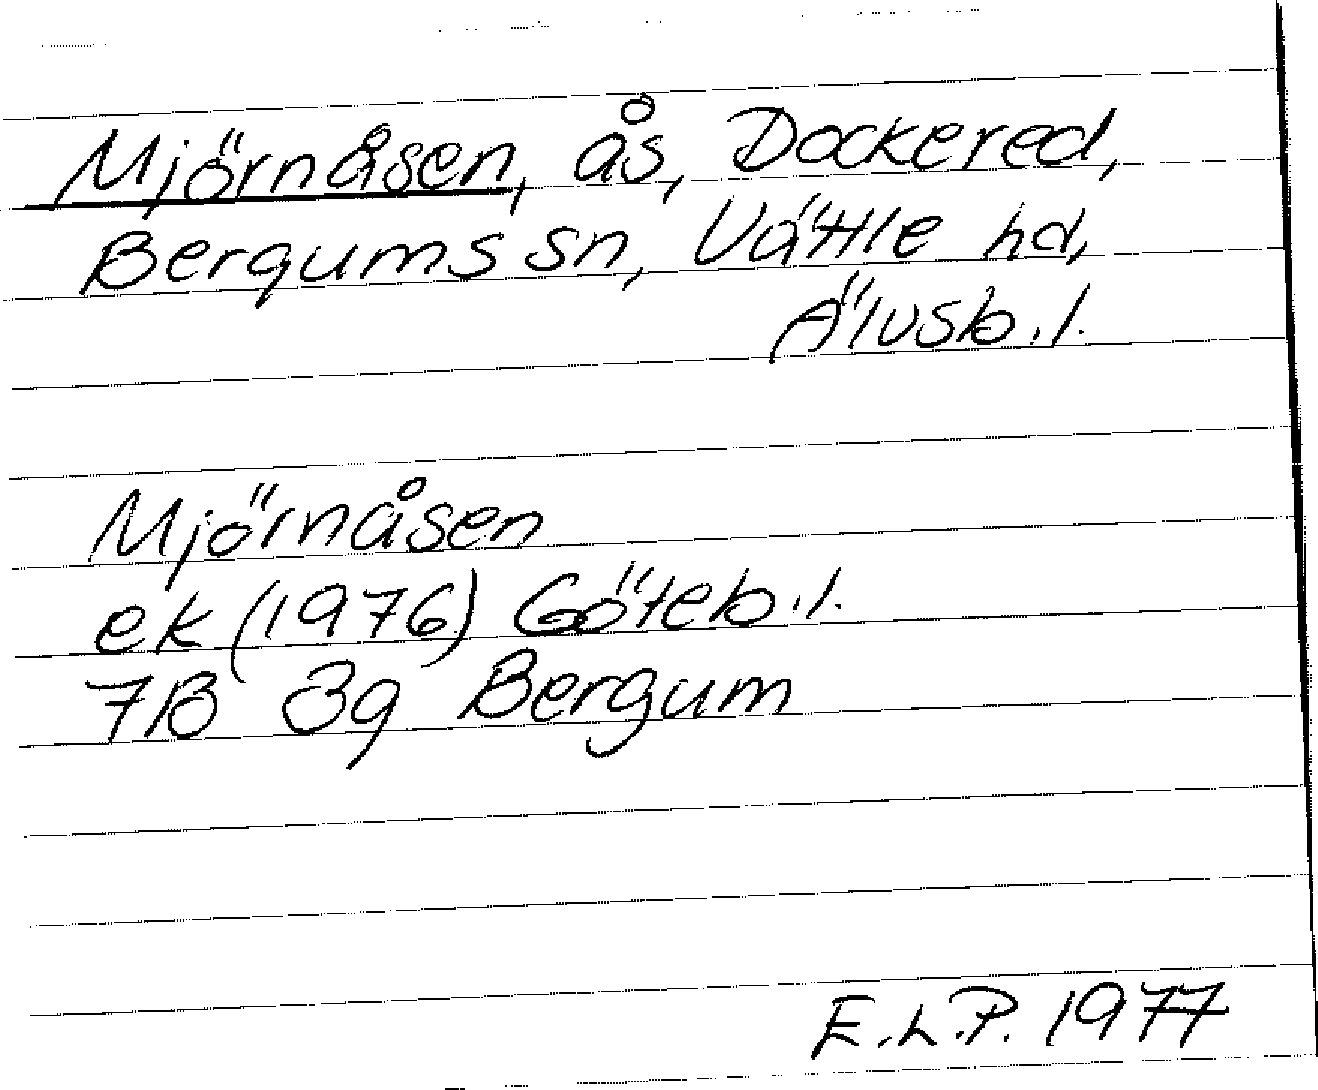 Mjörnåsen, ås, Dockered,
Bergums sn, Vättle hd,
Älvsb.l.
Mjörnåsen
ek (1976) Göteb.l.
7B 3g Bergum
E.L.P. 1977